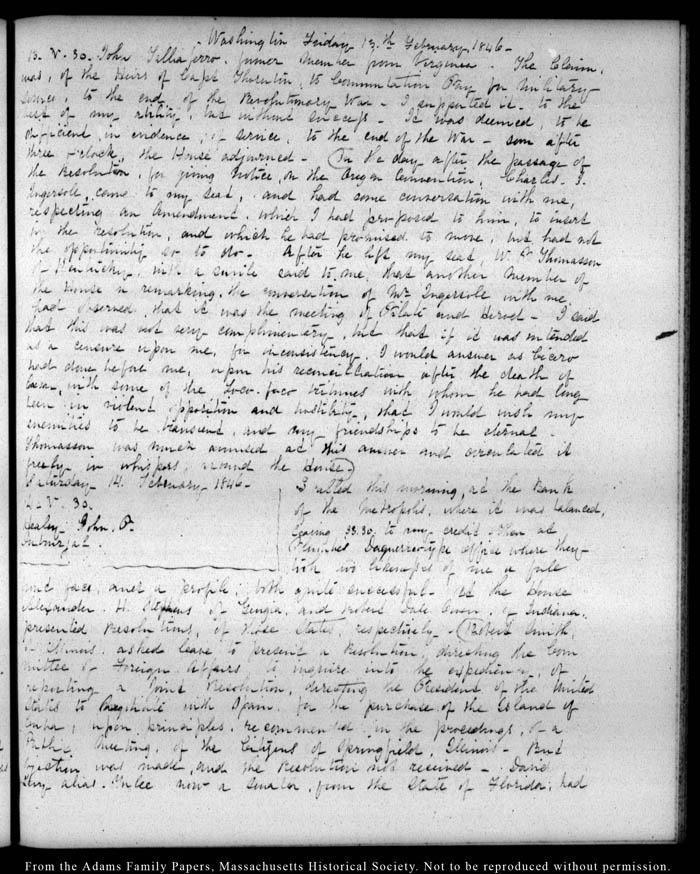 Washington Friday 13.th February 1846-
13. V. 30. John Talliaferro. former member from Virginia. The Claim,
was, of the Heirs of Capt Thornton, to Commutation Pay for military
service, to the end of the Revolutionary War - I supported it to the
best of my ability, but without success - It was deemed, to be
deficient, in evidence, of service, to the end of the War - soon after
three o'clock, the House adjourned - On the day after the passage of
the Resolution, for giving Notice, on the Oregon Convention, Charles J.
Ingersoll, came to my seat, and had some conversation with me,
respecting an Amendment which I had proposed to him, to insert
in the Resolution, and which he had promised to move, but had not
the opportunity so to do - After he left my seat, W. P. Thomasson
of Kentucky, with a smile said to me, that another member of
the House in remarking, the conversation of Mr Ingersoll with me,
had observed, that it was the meeting of Pilate and Herod - I said
that this was not very complimentary, but that if it was intended
as a censure upon me, for inconsistency, I would answer as Cicero
had done before me, upon his reconciliation after the death of
Caesar, with some of the Loco-foco tribunes with whom he had long
been in violent opposition and hostility, that I would wish my
enmities to be transient, and my friendships to be eternal -
Thomasson was much amused at this answer and circulated it
freely in whispers, around the House.
Saturday 14. February 1846-
V. 30.
Healey John P.
I called this morning, at the Bank
of the Metropolis, where it was balanced,
leaving 33.30 to my credit. then at
Plumbe's Daguerreotype office where they
took two likenesses of me a full
and face, and a profile, both quite successful - At the House
Alexander H. Stephens of Georgia, and Robert Dale Owen, of Indiana,
presented Resolutions, of those States, respectively - Robert Smith,
of Illinois asked leave to present a Resolution, directing the Com
mittee of Foreign Affairs to inquire into the expediency, of
reporting a Joint Resolution, directing the President of the United
States to Negotiate with Spain for the purchase of the Island of
Cuba, upon principles, recommended in the proceedings, of a
Public Meeting, of the Citizens of Springfield, Illinois - But
objection was made, and the Resolution not received - David
Levy alias Yulee now a Senator, from the State of Florida, had
From the Adams Family Papers, Massachusetts Historical Society. Not to be reproduced without permission.